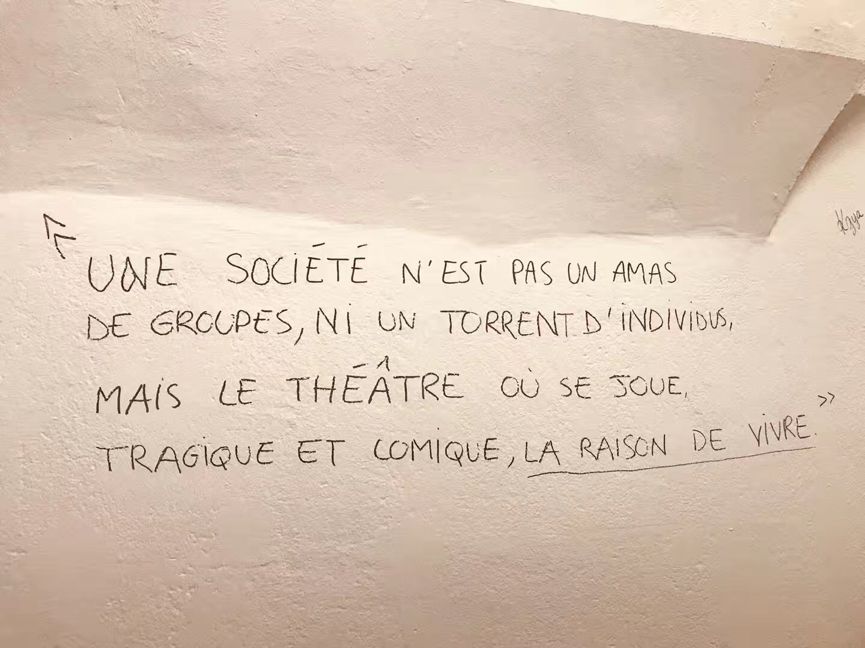 « UNE SOCIÉTÉ N'EST PAS UN AMAS
DE GROUPES, NI UN TORRENT D'INDIVIDUS,
MAIS LE THÉÂTRE OÙ SE JOUE,
TRAGIQUE ET COMIQUE, LA RAISON DE VIVRE. »